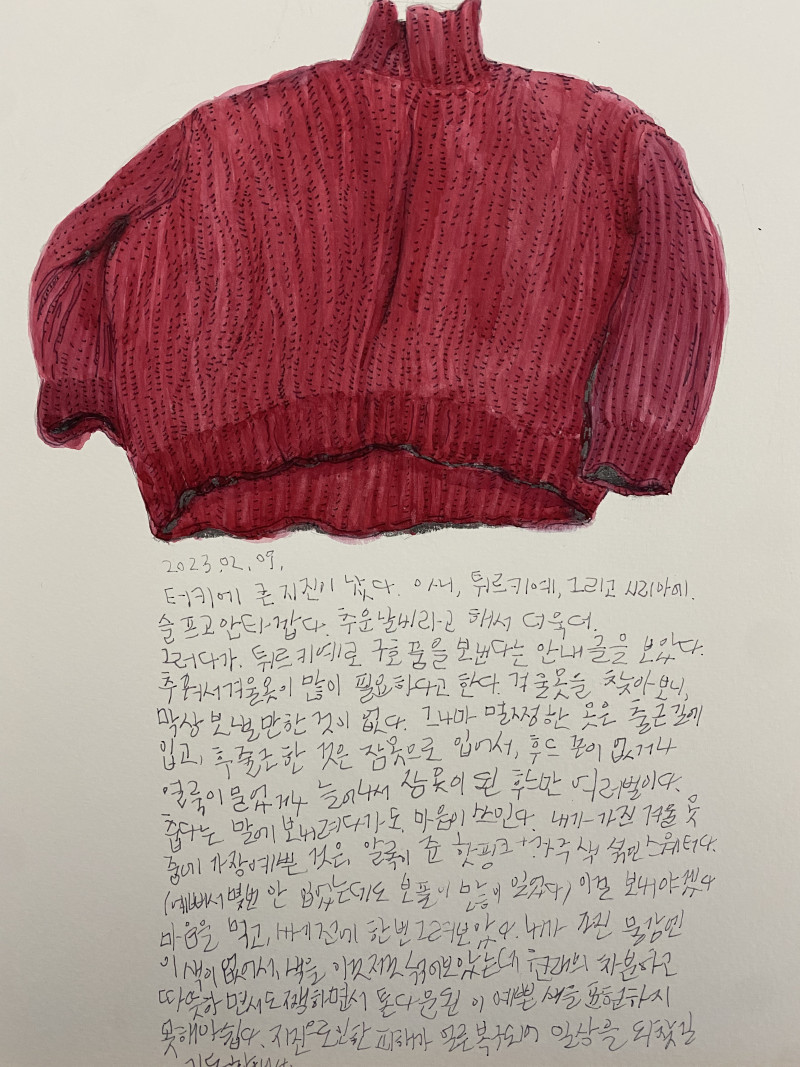 2023.02.09.
터키에 큰 지진이 났다. 아니, 튀르키예, 그리고 시리아에.
슬프고 안타깝다. 추운 날씨라고 해서 더욱더.
그러다가. 튀르키예로 구호품을 보낸다는 안내글을 보았다.
추워서 겨울옷이 많이 필요하다고 한다. 겨울옷을 찾아보니,
막상 보낼만한 것이 없다. 그나마 멀쩡한 옷은 출근길에
입고, 후줄근한 것은 잠옷으로 입어서, 후드 끈이 없거나
얼룩이 묻었거나 늘어나서 잠옷이 된 후드만 여러벌이다.
춥다는 말에 보내려다가도, 마음이 쓰인다. 내가 가진 겨울 옷
중에 가장 예쁜 것은, 알록이 준 핫핑크+자주색 섞인 스웨터다.
(예뻐서 몇번 안 입었는데도 보풀이 많이 일었다) 이걸 보내야겠다
마음을 먹고, 버리기 전에 한번 그려보았다. 내가 가진 물감엔
이 색이 없어서, 색을 이것저것 섞어보았는데 원래의 차분하고
따뜻하면서도 쨍하면서 톤다운된 이 예쁜 색을 표현하지
못해 아쉽다. 지진으로 인한 피해가 얼른 복구되어 일상을 되찾길